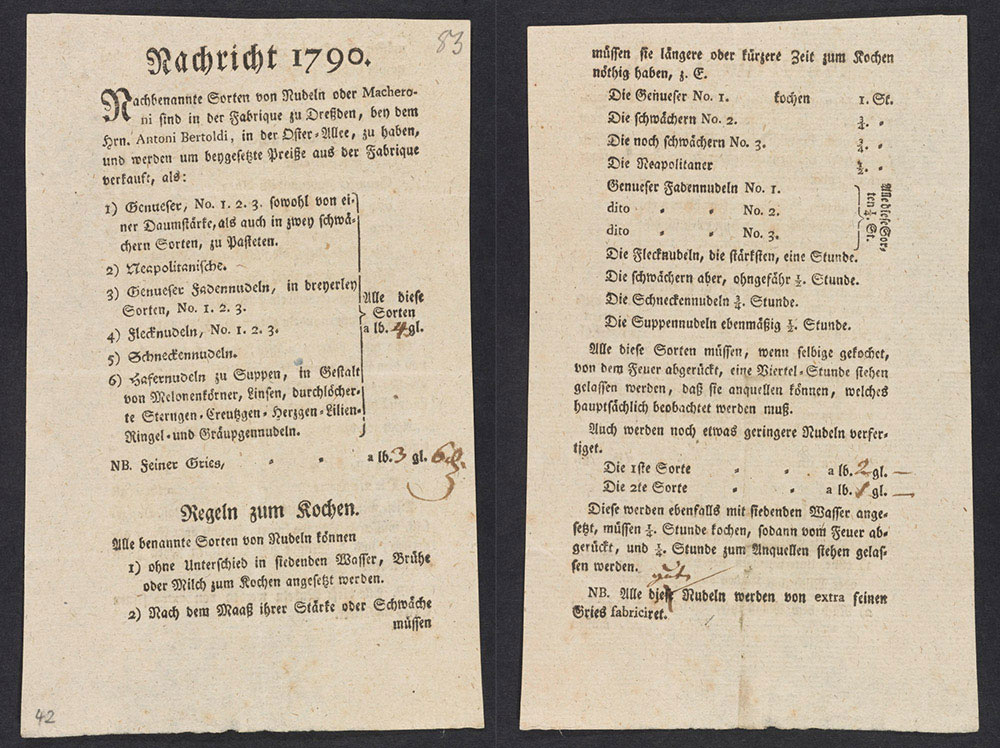 83
Nachricht 1790.
Nachbenannte Sorten von Nudeln oder Machero-
ni sind in der Fabrique zu Dreßden, bey dem
Hrn. Antoni Bertoldi, in der Oster-Allee, zu haben,
und werden um beygesetzte Preiße aus der Fabrique
verkauft, als:
1) Genueser, No. 1. 2. 3. sowohl von ei-
ner Daumstärke, als auch in zwey schwä-
chern Sorten, zu Pasteten.
2) Neapolitanische.
3) Genueser Fadennudeln, in dreyerley
Sorten, No. 1. 2. 3.
4) Flecknudeln, No. 1. 2. 3.
5) Schneckennudeln.
6) Hafernudeln zu Suppen, in Gestalt
von Melonenkörner, Linsen, durchlöcher-
te Sterngen-Creutzgen-Herzgen-Lilien-
Ringel-und Gräupgennudeln.
Alle diese
Sorten
a lb. 4 gl.
NB. Feiner Gries, " " a lb. 3 gl.
Regeln zum Kochen.
Alle benannte Sorten von Nudeln können
1) ohne Unterschied in siedenden Wasser, Brühe
oder Milch zum Kochen angesetzt werden.
2) Nach dem Maaß ihrer Stärke oder Schwäche
müssen
42
müssen sie längere oder kürzere Zeit zum Kochen
nöthig haben, z. E.
Die Genueser No. 1. kochen 1. St.
Die schwächern No. 2. ¾. "
Die noch schwächern No. 3. ¾. "
Die Neapolitaner ½. "
Genueser Fadennudeln No. 1.
dito " " No. 2.
dito " " No. 3.
Alle diese Sor-
ten ½. St.
Die Flecknudeln, die stärksten, eine Stunde.
Die schwächern aber, ohngefähr ½. Stunde.
Die Schneckennudeln ¾. Stunde.
Die Suppennudeln ebenmäßig ½. Stunde.
Alle diese Sorten müssen, wenn selbige gekochet,
von dem Feuer abgerückt, eine Viertel-Stunde stehen
gelassen werden, daß sie anquellen können, welches
hauptsächlich beobachtet werden muß.
Auch werden noch etwas geringere Nudeln verfer-
tiget.
Die 1ste Sorte " " a lb. 2 gl. —
Die 2te Sorte " " a lb. 1 gl. —
Diese werden ebenfalls mit siedenden Wasser ange-
setzt, müssen ½. Stunde kochen, sodann vom Feuer ab-
gerückt, und ¼. Stunde zum Anquellen stehen gelas-
sen werden.
gute
NB. Alle diese Nudeln werden von extra feinen
Gries fabriciret.